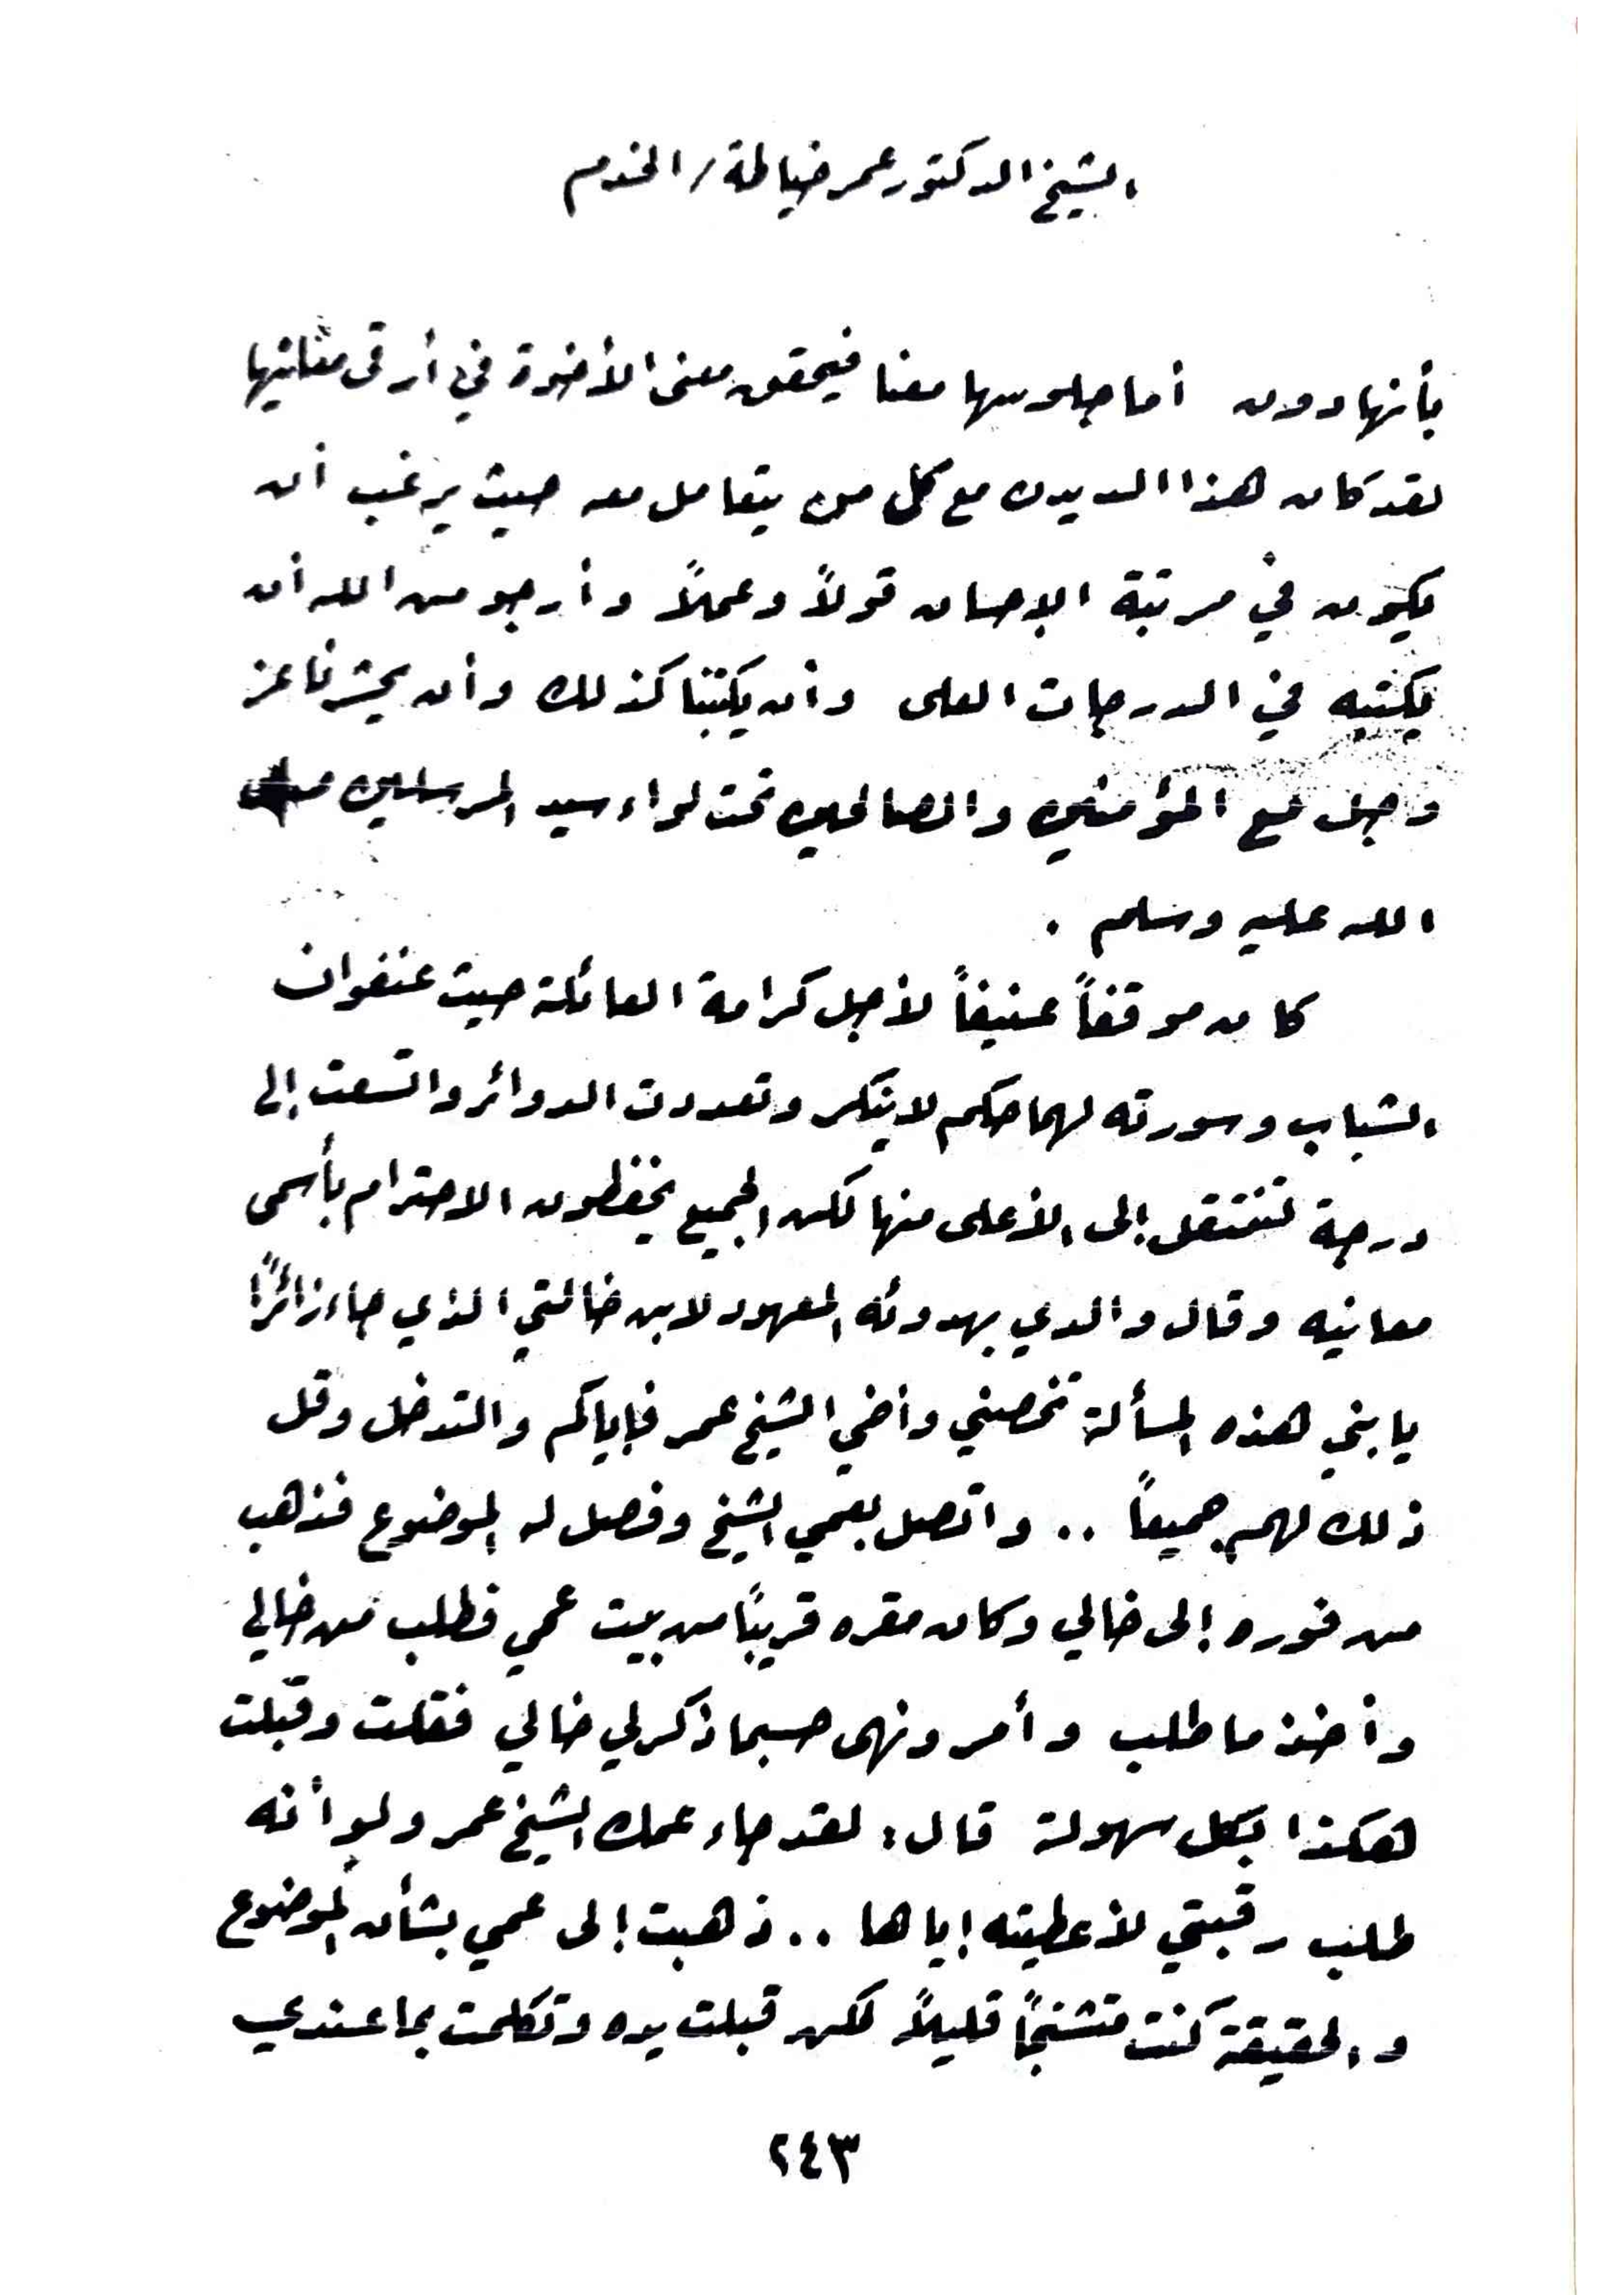 الشيخ الدكتور عمر خياطة / الخدوم
بأنها دون أما جلوسها معنا فيحقق معنى الأخوة في أرقى معانيها
لقد كان هذا الديدن مع كل من يتعامل معه حيث يرغب أن
يكون في مرتبة الإحسان قولاً وعملاً وأرجو من الله أن
يكتبه في الدرجات العلى وأن يكتبنا كذلك وأن يحشرنا عز
وجل مع المؤمنين والصالحين تحت لواء سيد المرسلين صلى
الله عليه وسلم .
كان موقفاً عنيفاً لأجل كرامة العائلة حيث عنفوان
الشباب وسورته لهما حكم لا ينكر وتعددت الدوائر واتسعت إلى
درجة تنتقل إلى الأعلى منها لكن الجميع يحفظون الاحترام بأسمى
معانيه وقال والدي بهدوئه المعهود لابن خالتي الذي جاء زائراً
يا بني هذه المسألة تخصني وأخي الشيخ عمر فإياكم والتدخل وقل
ذلك لهم جميعاً .. واتصل بعمي الشيخ وفصل له الموضوع فذهب
من فوره إلى خالي وكان مقره قريباً من بيت عمي فطلب من خالي
وأخذ ما طلب وأمر ونهى حسبما ذكر لي خالي فقلت وقبلت
هكذا بكل سهولة قال : لقد جاء عمك الشيخ عمر ولو أنه
طلب رقبتي لأعطيته إياها .. ذهبت إلى عمي بشأن الموضوع
والحقيقة كنت متشنجاً قليلاً لكن قبلت يده وتكلمت بما عندي
٢٤٣